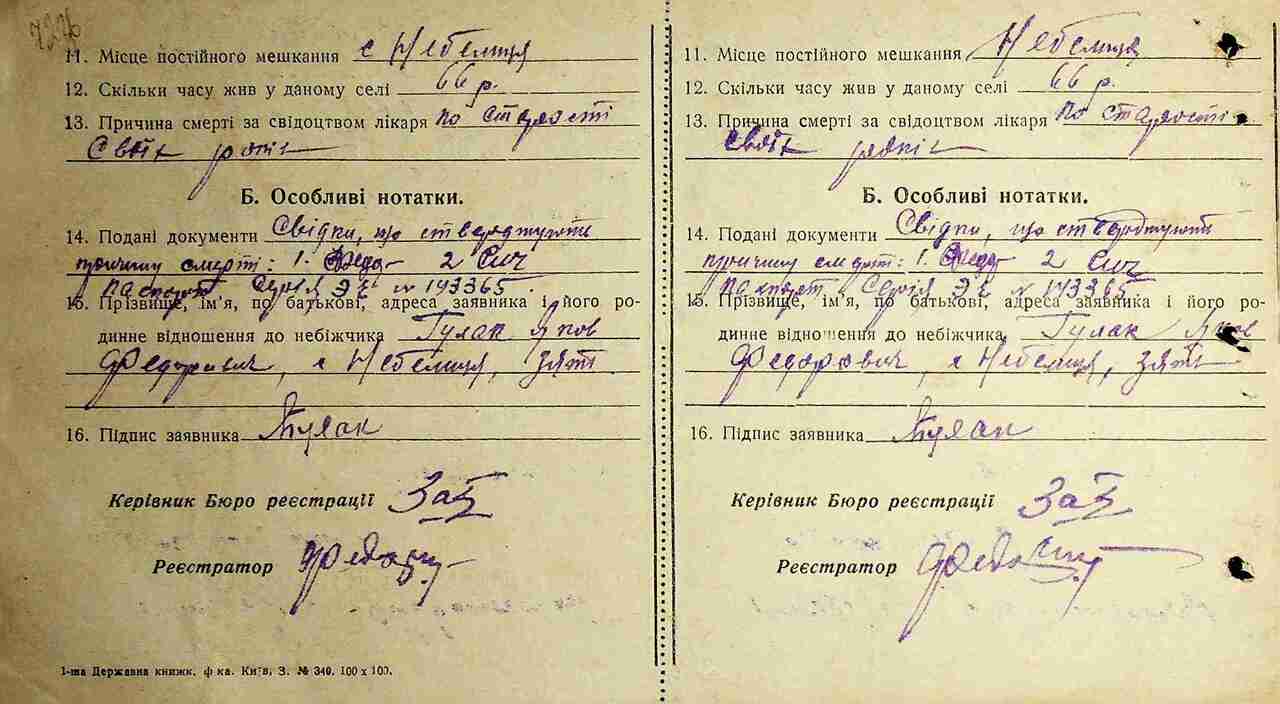 11. Місце постійного мешкання с Небелиця
12. Скільки часу жив у даному селі 66 р.
13. Причина смерті за свідоцтвом лікаря по старості
своїх
Б. Особливі нотатки.
14. Подані документи Свідки, що стверджують
причину смерті: 1. 2
паспорт Серія № 143365
15. Прізвище, ім'я, по батькові, адреса заявника і його ро-
динне відношення до небіжчика Гулак Яков
Федорович, с Небелиця, зять
16. Підпис заявника Гулак
Керівник Бюро реєстрації
Реєстратор
1-ша Державна книжк. ф-ка. Київ, З. № 340. 100 x 100.
11. Місце постійного мешкання Небелиця
12. Скільки часу жив у даному селі 66 р.
13. Причина смерті за свідоцтвом лікаря по старості
своїх
Б. Особливі нотатки.
14. Подані документи Свідки, що стверджують
причину смерті: 1. 2
паспорт Серія № 143365
15. Прізвище, ім'я, по батькові, адреса заявника і його ро-
динне відношення до небіжчика Гулак Яков
Федорович, с Небелиця, зять
16. Підпис заявника Гулак
Керівник Бюро реєстрації
Реєстратор